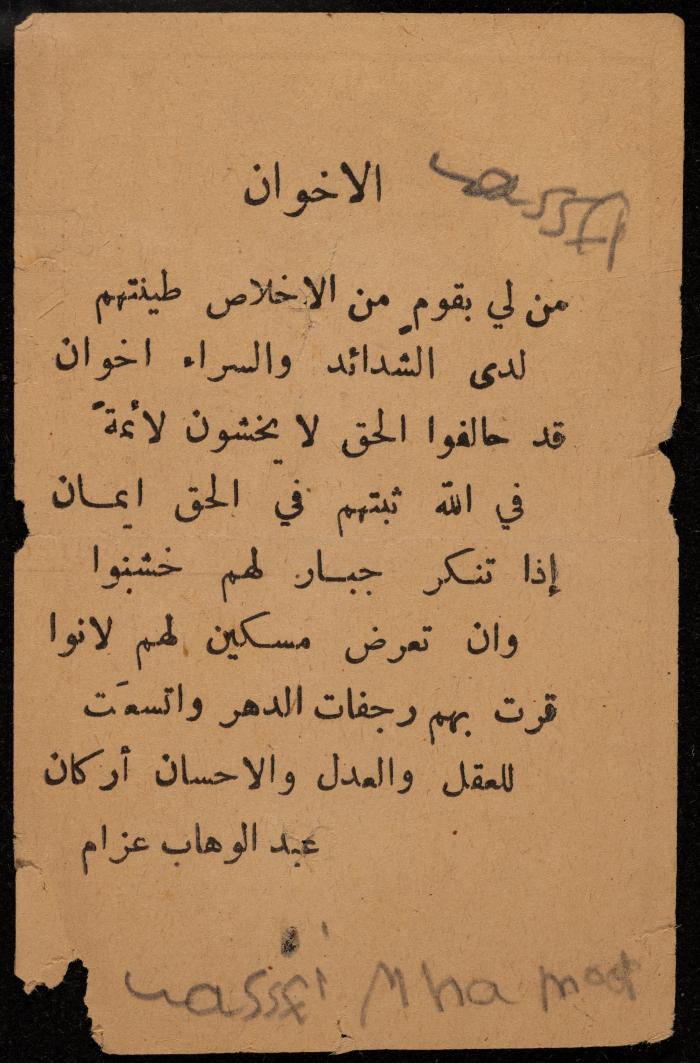 الاخوان
من لي بقومٍ من الاخلاص طينتهم
لدى الشدائد والسراء اخوان
قد حالفوا الحق لا يخشون لأئمةً
في الله ثبتهم في الحق ايمان
إذا تنكر جبار لهم خشنوا
وان تعرض مسكين لهم لانوا
قرت بهم رجفات الدهر واتسعَت
للعقل والعدل والاحسان أركان
عبد الوهاب عزام